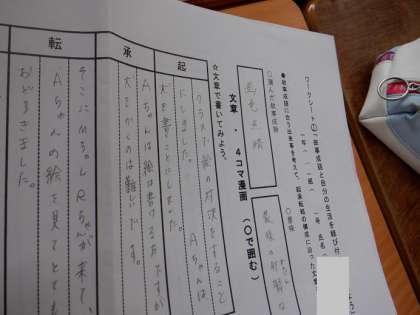 ワークシート① 「故事成語と自分の生活を結び
●故事成語に合う出来事を考えて、起承転結の構成に沿った文章
一年( )組( )号 氏名(
○選んだ故事成語
画竜点睛
○意味
最後の
文章 ・ 4コマ漫画 (○で囲む)
☆文章で書いてみよう。
起
クラスで絵の対決をすること
にしました。Aちゃんは
犬を書くことにしました。
承
Aちゃんは絵は書ける方ですが
犬をかくのは難しいです。
転
そこにMさんとRちゃんが来て、
Aちゃんの絵を見てとても
おどろきました。